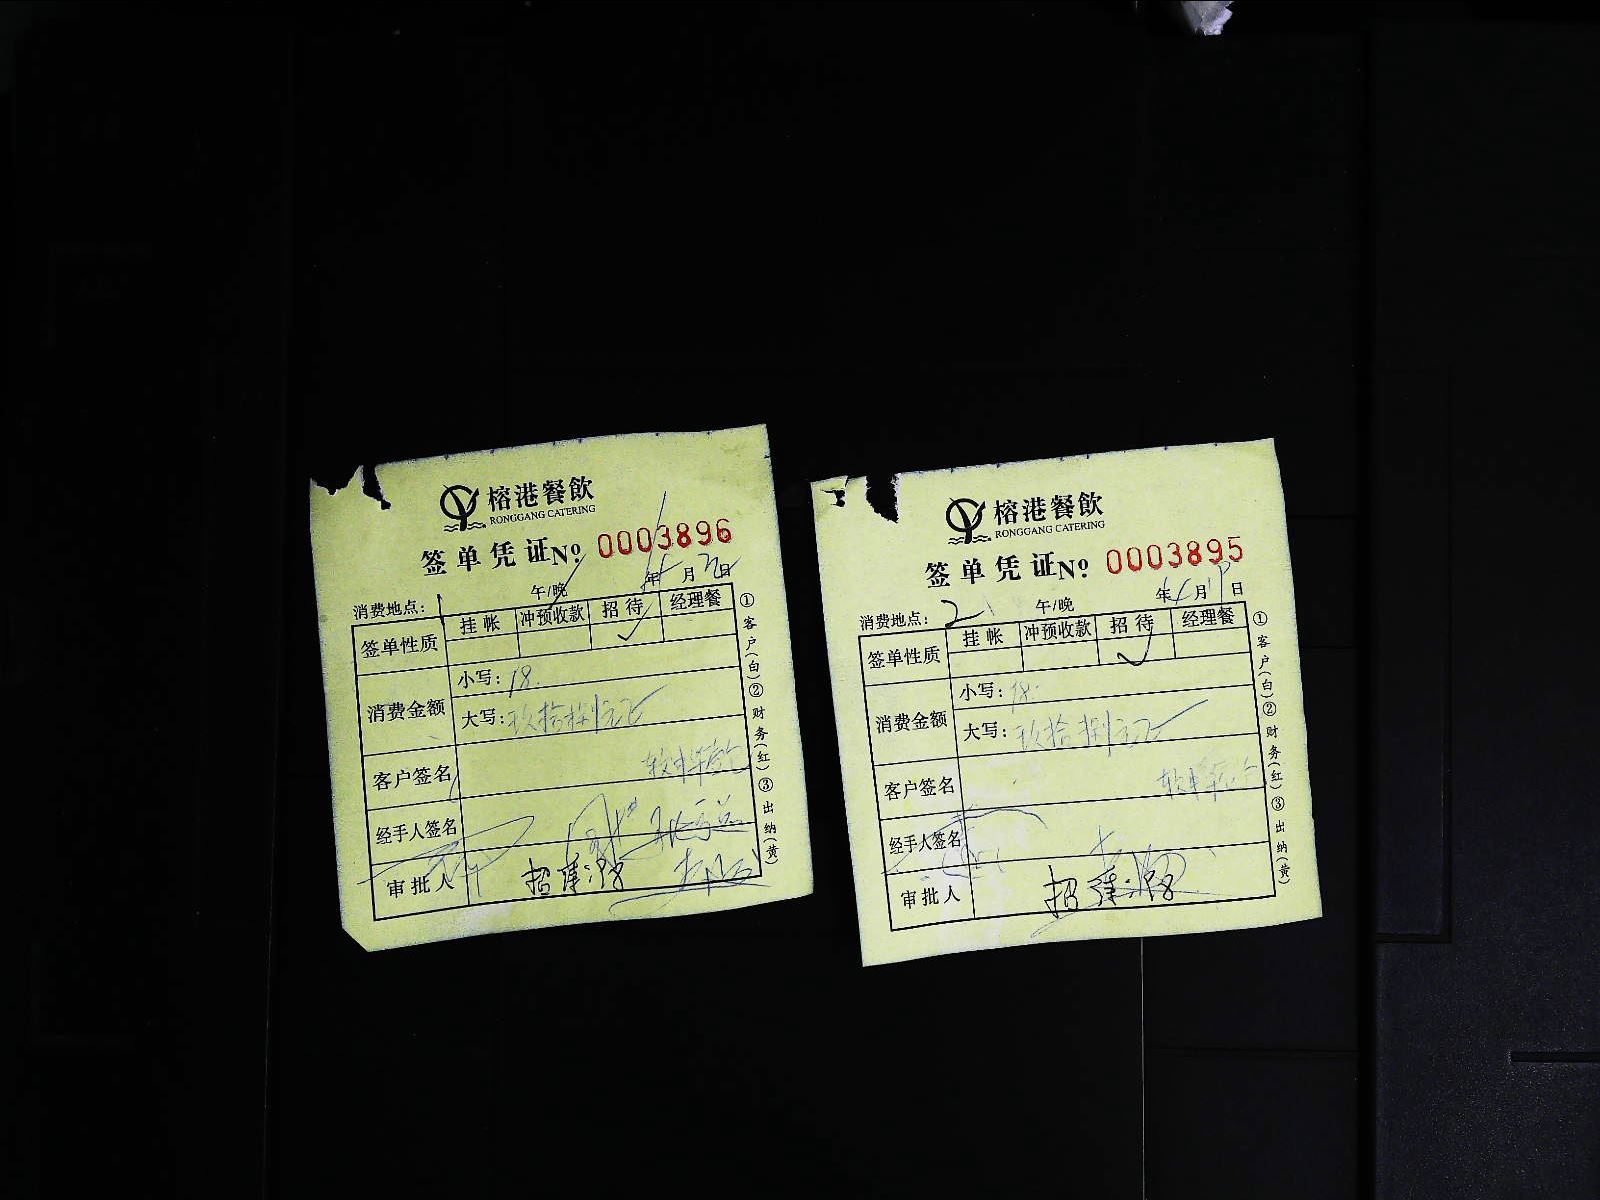 榕港餐飲
RONGGANG CATERING
签单凭证 Nº 0003896
消费地点: 1 午/晚 年 月 日
签单性质 挂帐 冲预收款 招待 经理餐
✓
消费金额 小写:
大写: 玖拾捌元正
客户签名
经手人签名
审批人
①客户(白)②财务(红)③出纳(黄)
榕港餐飲
RONGGANG CATERING
签单凭证 Nº 0003895
消费地点: 2 午/晚 年 月 日
签单性质 挂帐 冲预收款 招待 经理餐
✓
消费金额 小写:
大写: 玖拾捌元正
客户签名
经手人签名
审批人
①客户(白)②财务(红)③出纳(黄)